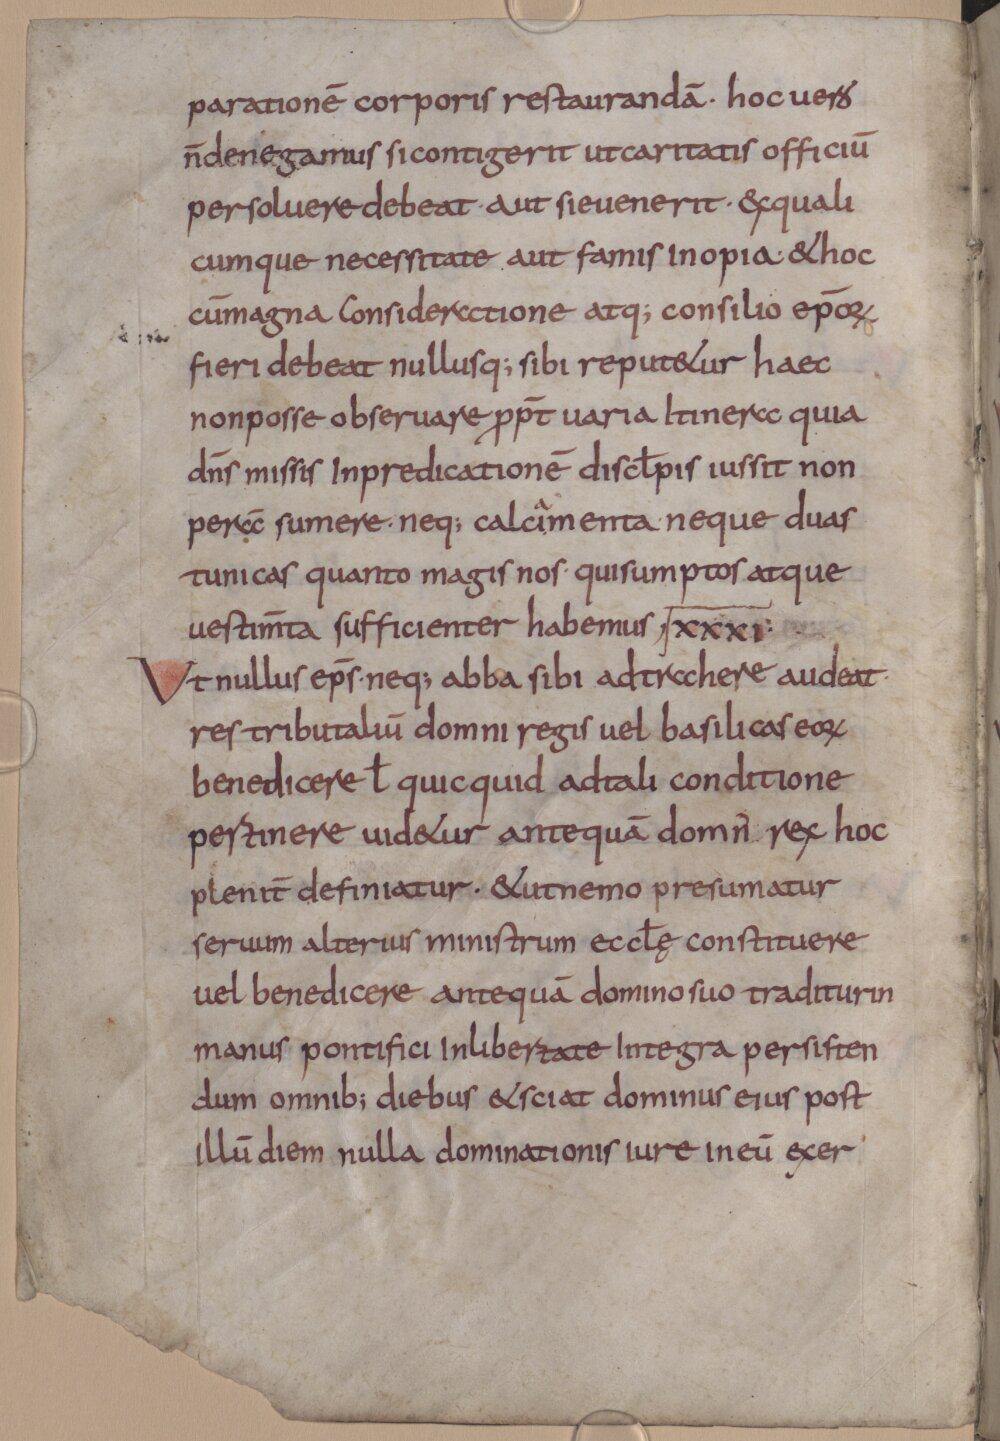 parationē corporis restaurandā· hoc uero
n̄ denegamus si contigerit ut caritatis officiū
persoluere debeat· aut si euenerit· & quali
cumque necessitate aut famis inopia· & hoc
cū magna consideratione atq; consilio ep̄oꝝ
fieri debeat nullusq; sibi reput&ur haec
non posse obseruare ꝓpt̄ uaria Itinera quia
dn̄s missis In predicationē discƚpis iussit non
perā sumere· neq; calciamenta neque duas
tunicas quanto magis nos· qui sumptos atque
uestim̄ta sufficienter habemus, xxxi:
Vt nullus ep̄s· neq; abba sibi adtrachere audeat·
res tributaliū domni regis uel basilicas eoꝝ
benedicere ƚ quicquid ad tali conditione
pertinere uid&ur antequā domn̄ rex hoc
plenit̄ definiatur· & ut nemo presumatur
seruum alterius ministrum eccƚę constituere
uel benedicere antequā domino suo traditur in
manus pontifici In libertate Integra persisten
dum omnib; diebus & sciat dominus eius post
illū diem nulla dominationis iure in eū exer